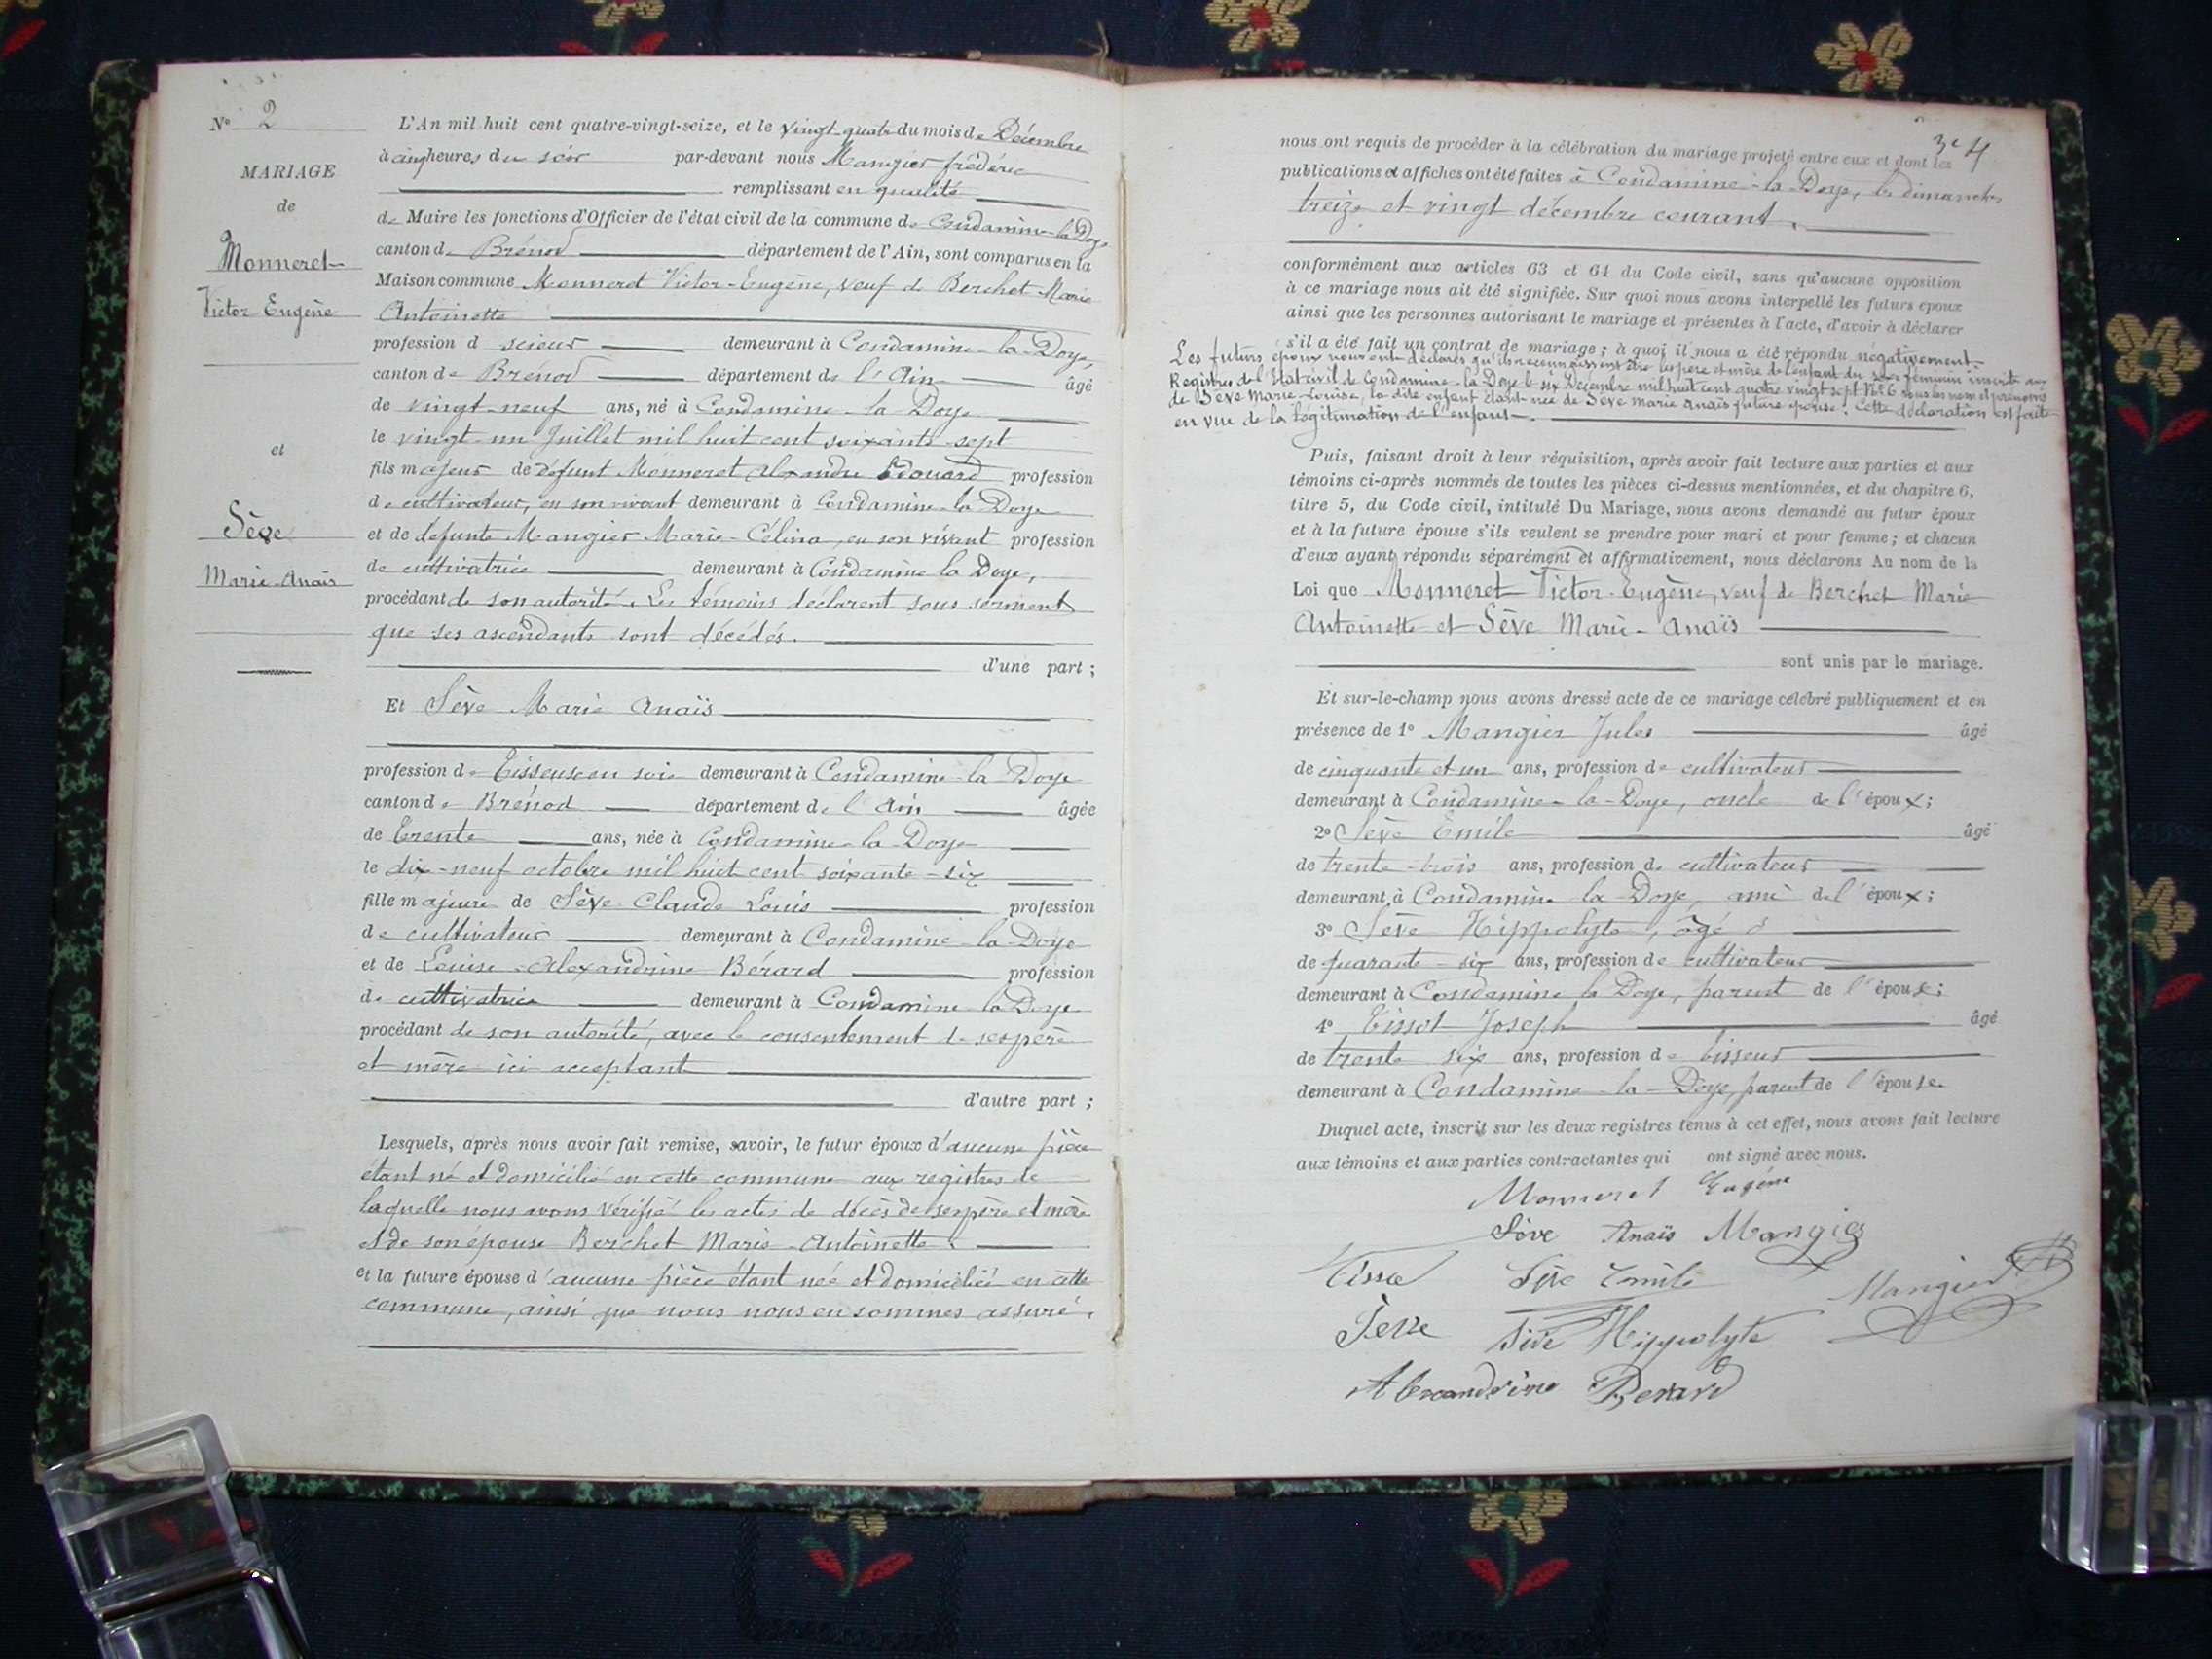 N° 2
MARIAGE
de
Monneret
Victor Eugène
et
Sève
Marie-Anaïs
L'An mil huit cent quatre-vingt-seize, et le vingt-quatre du mois de Décembre
à cinq heures du soir par-devant nous Mangier frédéric
remplissant en qualité
de Maire les fonctions d'Officier de l'état civil de la commune de Condamine-la-Doye
canton de Brénod département de l'Ain, sont comparus en la
Maison commune Monneret Victor-Eugène, veuf de Berchet Marie
Antoinette
profession d scieur demeurant à Condamine-la-Doye,
canton de Brénod département de l'Ain âgé
de vingt-neuf ans, né à Condamine-la-Doye
le vingt-un Juillet mil huit cent soixante-sept
fils majeur de défunt Monneret Alexandre Edouard profession
de cultivateur, en son vivant demeurant à Condamine-la-Doye
et de defunte Mangier Marie-Célina, en son vivant profession
de cultivatrice demeurant à Condamine la Doye,
procédant de son autorité. Les témoins déclarent sous serment
que ses ascendants sont décédés.
d'une part ;
Et Sève Marie Anaïs
profession de Tisseuse en soie demeurant à Condamine-la-Doye
canton de Brénod département de l'Ain âgée
de trente ans, née à Condamine-la-Doye
le dix-neuf octobre mil huit cent soixante-six
fille majeure de Sève Claude Louis profession
de cultivateur demeurant à Condamine-la-Doye
et de Louise-Alexandrine Bérard profession
de cultivatrice demeurant à Condamine-la-Doye
procédant de son autorité, avec le consentement de ses père
et mère ici acceptant
d'autre part ;
Lesquels, après nous avoir fait remise, savoir, le futur époux d'aucune pièce
étant né et domicilié en cette commune aux registres de
laquelle nous avons vérifié les actes de décès de ses père et mère
et de son épouse Berchet Marie-Antoinette.
et la future épouse d'aucune pièce étant née et domiciliée en cette
commune, ainsi que nous nous en sommes assuré.
4
nous ont requis de procéder à la célébration du mariage projeté entre eux et dont les
publications et affiches ont été faites à Condamine-la-Doye, les dimanches
treize et vingt décembre courant.
conformément aux articles 63 et 64 du Code civil, sans qu'aucune opposition
à ce mariage nous ait été signifiée. Sur quoi nous avons interpellé les futurs époux
ainsi que les personnes autorisant le mariage et présentes à l'acte, d'avoir à déclarer
s'il a été fait un contrat de mariage ; à quoi il nous a été répondu négativement.
Les futurs époux nous ont déclaré qu'ils reconnaissent être les père et mère de l'enfant du sexe féminin inscrite aux
Registres de l'Etat civil de Condamine-la-Doye le six Décembre mil huit cent quatre vingt sept N° 6 sous les nom et prénoms
de Sève Marie-Louise, la dite enfant étant née de Sève Marie Anaïs future épouse. Cette déclaration est faite
en vue de la légitimation de l'enfant.
Puis, faisant droit à leur réquisition, après avoir fait lecture aux parties et aux
témoins ci-après nommés de toutes les pièces ci-dessus mentionnées, et du chapitre 6,
titre 5, du Code civil, intitulé Du Mariage, nous avons demandé au futur époux
et à la future épouse s'ils veulent se prendre pour mari et pour femme ; et chacun
d'eux ayant répondu séparément et affirmativement, nous déclarons Au nom de la
Loi que Monneret Victor-Eugène, veuf de Berchet Marie
Antoinette et Sève Marie-Anaïs
sont unis par le mariage.
Et sur-le-champ nous avons dressé acte de ce mariage célébré publiquement et en
présence de 1° Mangier Jules âgé
de cinquante et un ans, profession de cultivateur
demeurant à Condamine-la-Doye, oncle de l'époux ;
2° Sève Emile âgé
de trente-trois ans, profession de cultivateur
demeurant à Condamine la Doye, ami de l'époux ;
3° Sève Hippolyte, âgé
de quarante-six ans, profession de cultivateur
demeurant à Condamine la Doye, parent de l'épouse ;
4° Tissot Joseph âgé
de trente six ans, profession de tisseur
demeurant à Condamine-la-Doye, parent de l'épouse.
Duquel acte, inscrit sur les deux registres tenus à cet effet, nous avons fait lecture
aux témoins et aux parties contractantes qui ont signé avec nous.
Monneret Eugène
Sève Anaïs Mangier
Sève Emile Mangier
Sève Sève Hippolyte
Alexandrine Berard